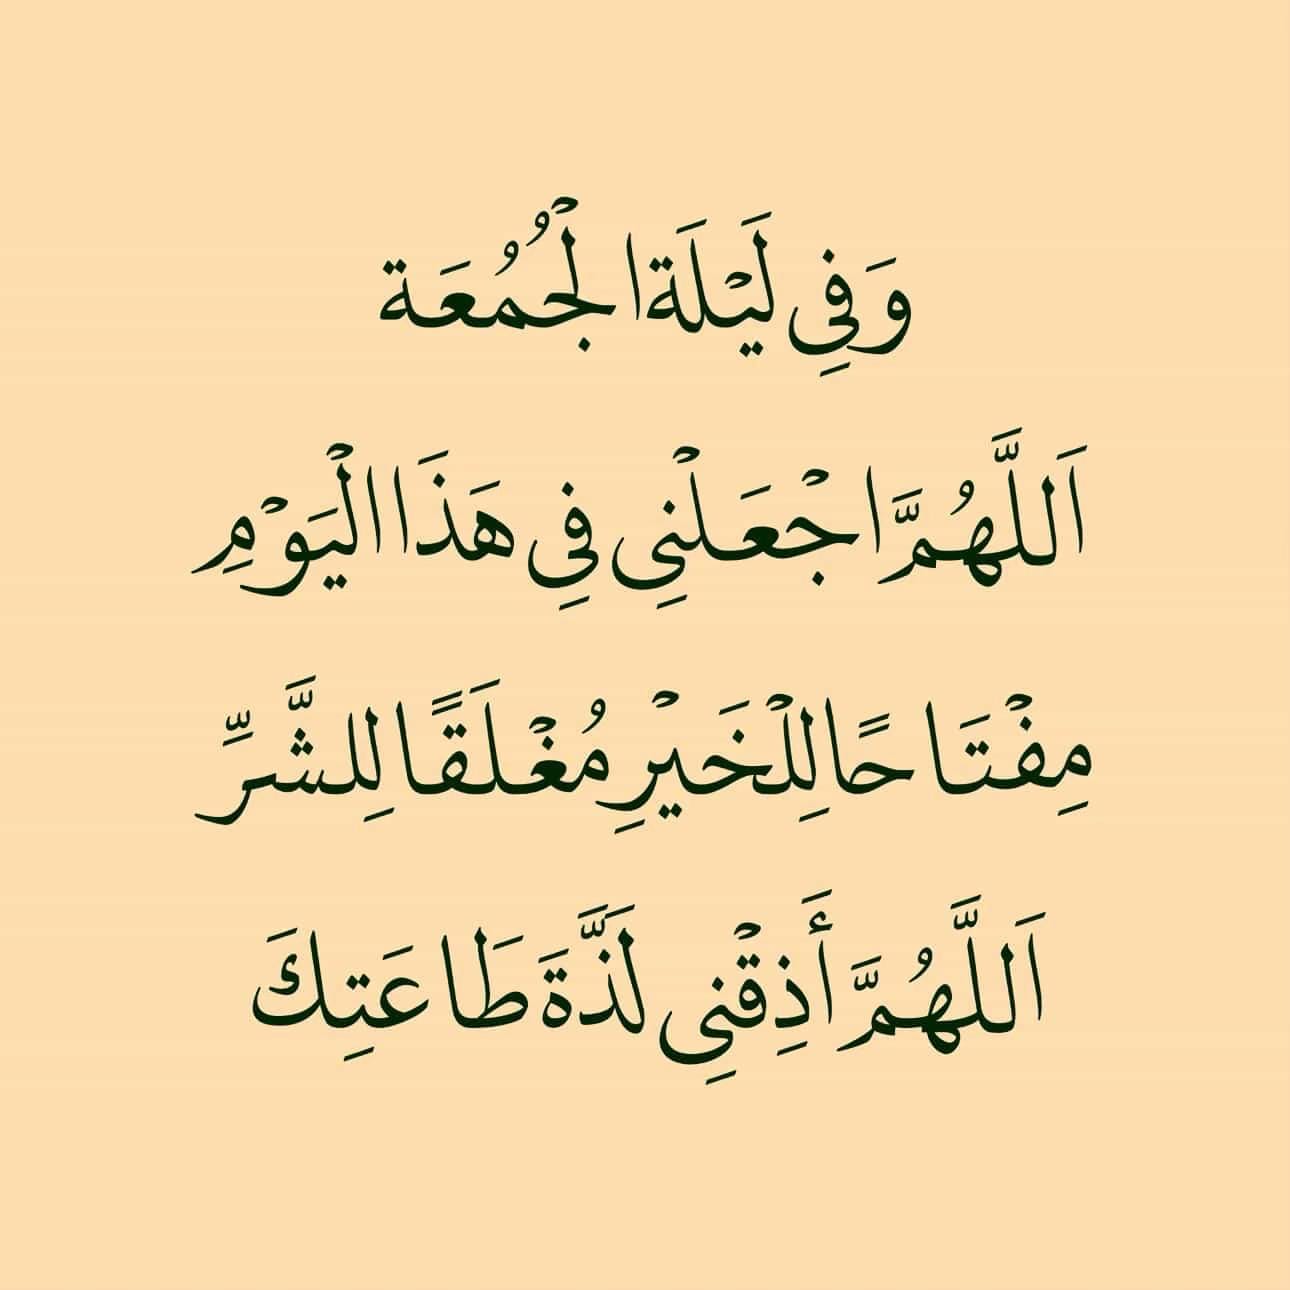 وَفِي لَيْلَةَ الْجُمُعَة
اَللَّهُمَّ اجْعَلْنِي فِي هَذَا الْيَوْمِ
مِفْتَاحًا لِلْخَيْرِ مُغْلَقًا لِلشَّرِّ
اَللَّهُمَّ أَذِقْنِي لَذَّةَ طَاعَتِكَ